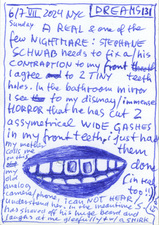 6/7 VII 2024 NYC DREAMS 131
Sunday A REAL & one of the
few NIGHTMARE: STEPHANE
SCHWAB needs to fix a/his
CONTRAPTION to my front teeth I
agree to 2 TINY teeth
holes. In the bathroom mirror
I see to my dismay/immense
HORROR that he has cut 2
assymatrical WIDE GASHES
in my front teeth, I just had
them
done
(in real
too!!)
my mother
calls me
on this
my
union
camera/phone, I can NOT HEAR/
understand her. In the meantime S.
has shaved off his huge beard and
laughs at me gleefully + / a SHIRK.